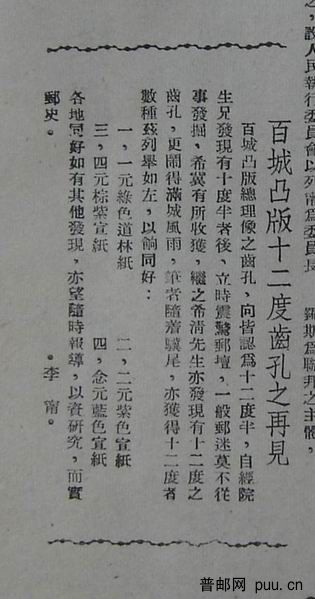 之,設人民執行委員會以列甯爲委員長
羅斯爲聯邦之主體,
百城凸版十二度齒孔之再見
百城凸版總理像之齒孔,向皆認爲十二度半,自經院
生兄發現有十度半者後、立時震驚郵壇,一般郵迷莫不從
事發掘,希冀有所收獲,繼之希淸先生亦發現有十二度之
齒孔,更鬧得滿城風雨,筆者隨蕭驥尾,亦獲得十二度者
數種茲列舉如左,以餉同好:
一,一元綠色道林紙 二,二元紫色宣紙
三,四元棕紫宣紙 四,念元藍色宣紙
各地同好如有其他發現,亦望隨時報導,以資研究,而實
郵史。 •李甯•
普邮网 puu.cn